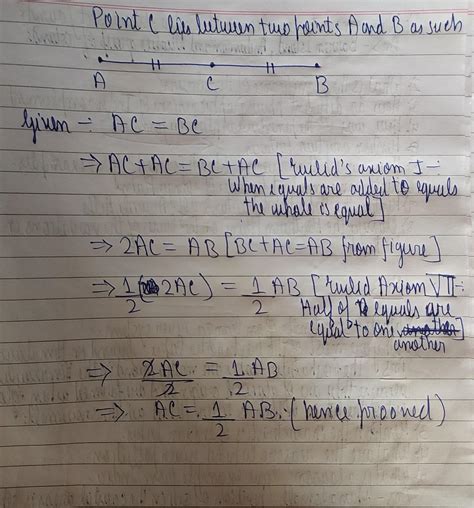 Point C lies between two points A and B as such
A C B
Given ÷ AC = BC
⇒ AC + AC = BC + AC [Euclid's axiom I ÷
When equals are added to equals
the whole is equal]
⇒ 2AC = AB [BC + AC = AB from figure]
⇒ 1/2 (2AC) = 1/2 AB [Euclid Axiom VII ÷
Half of equals are
equal to one
another]
⇒ 2AC/2 = 1/2 AB
⇒ AC = 1/2 AB. (hence prooned)